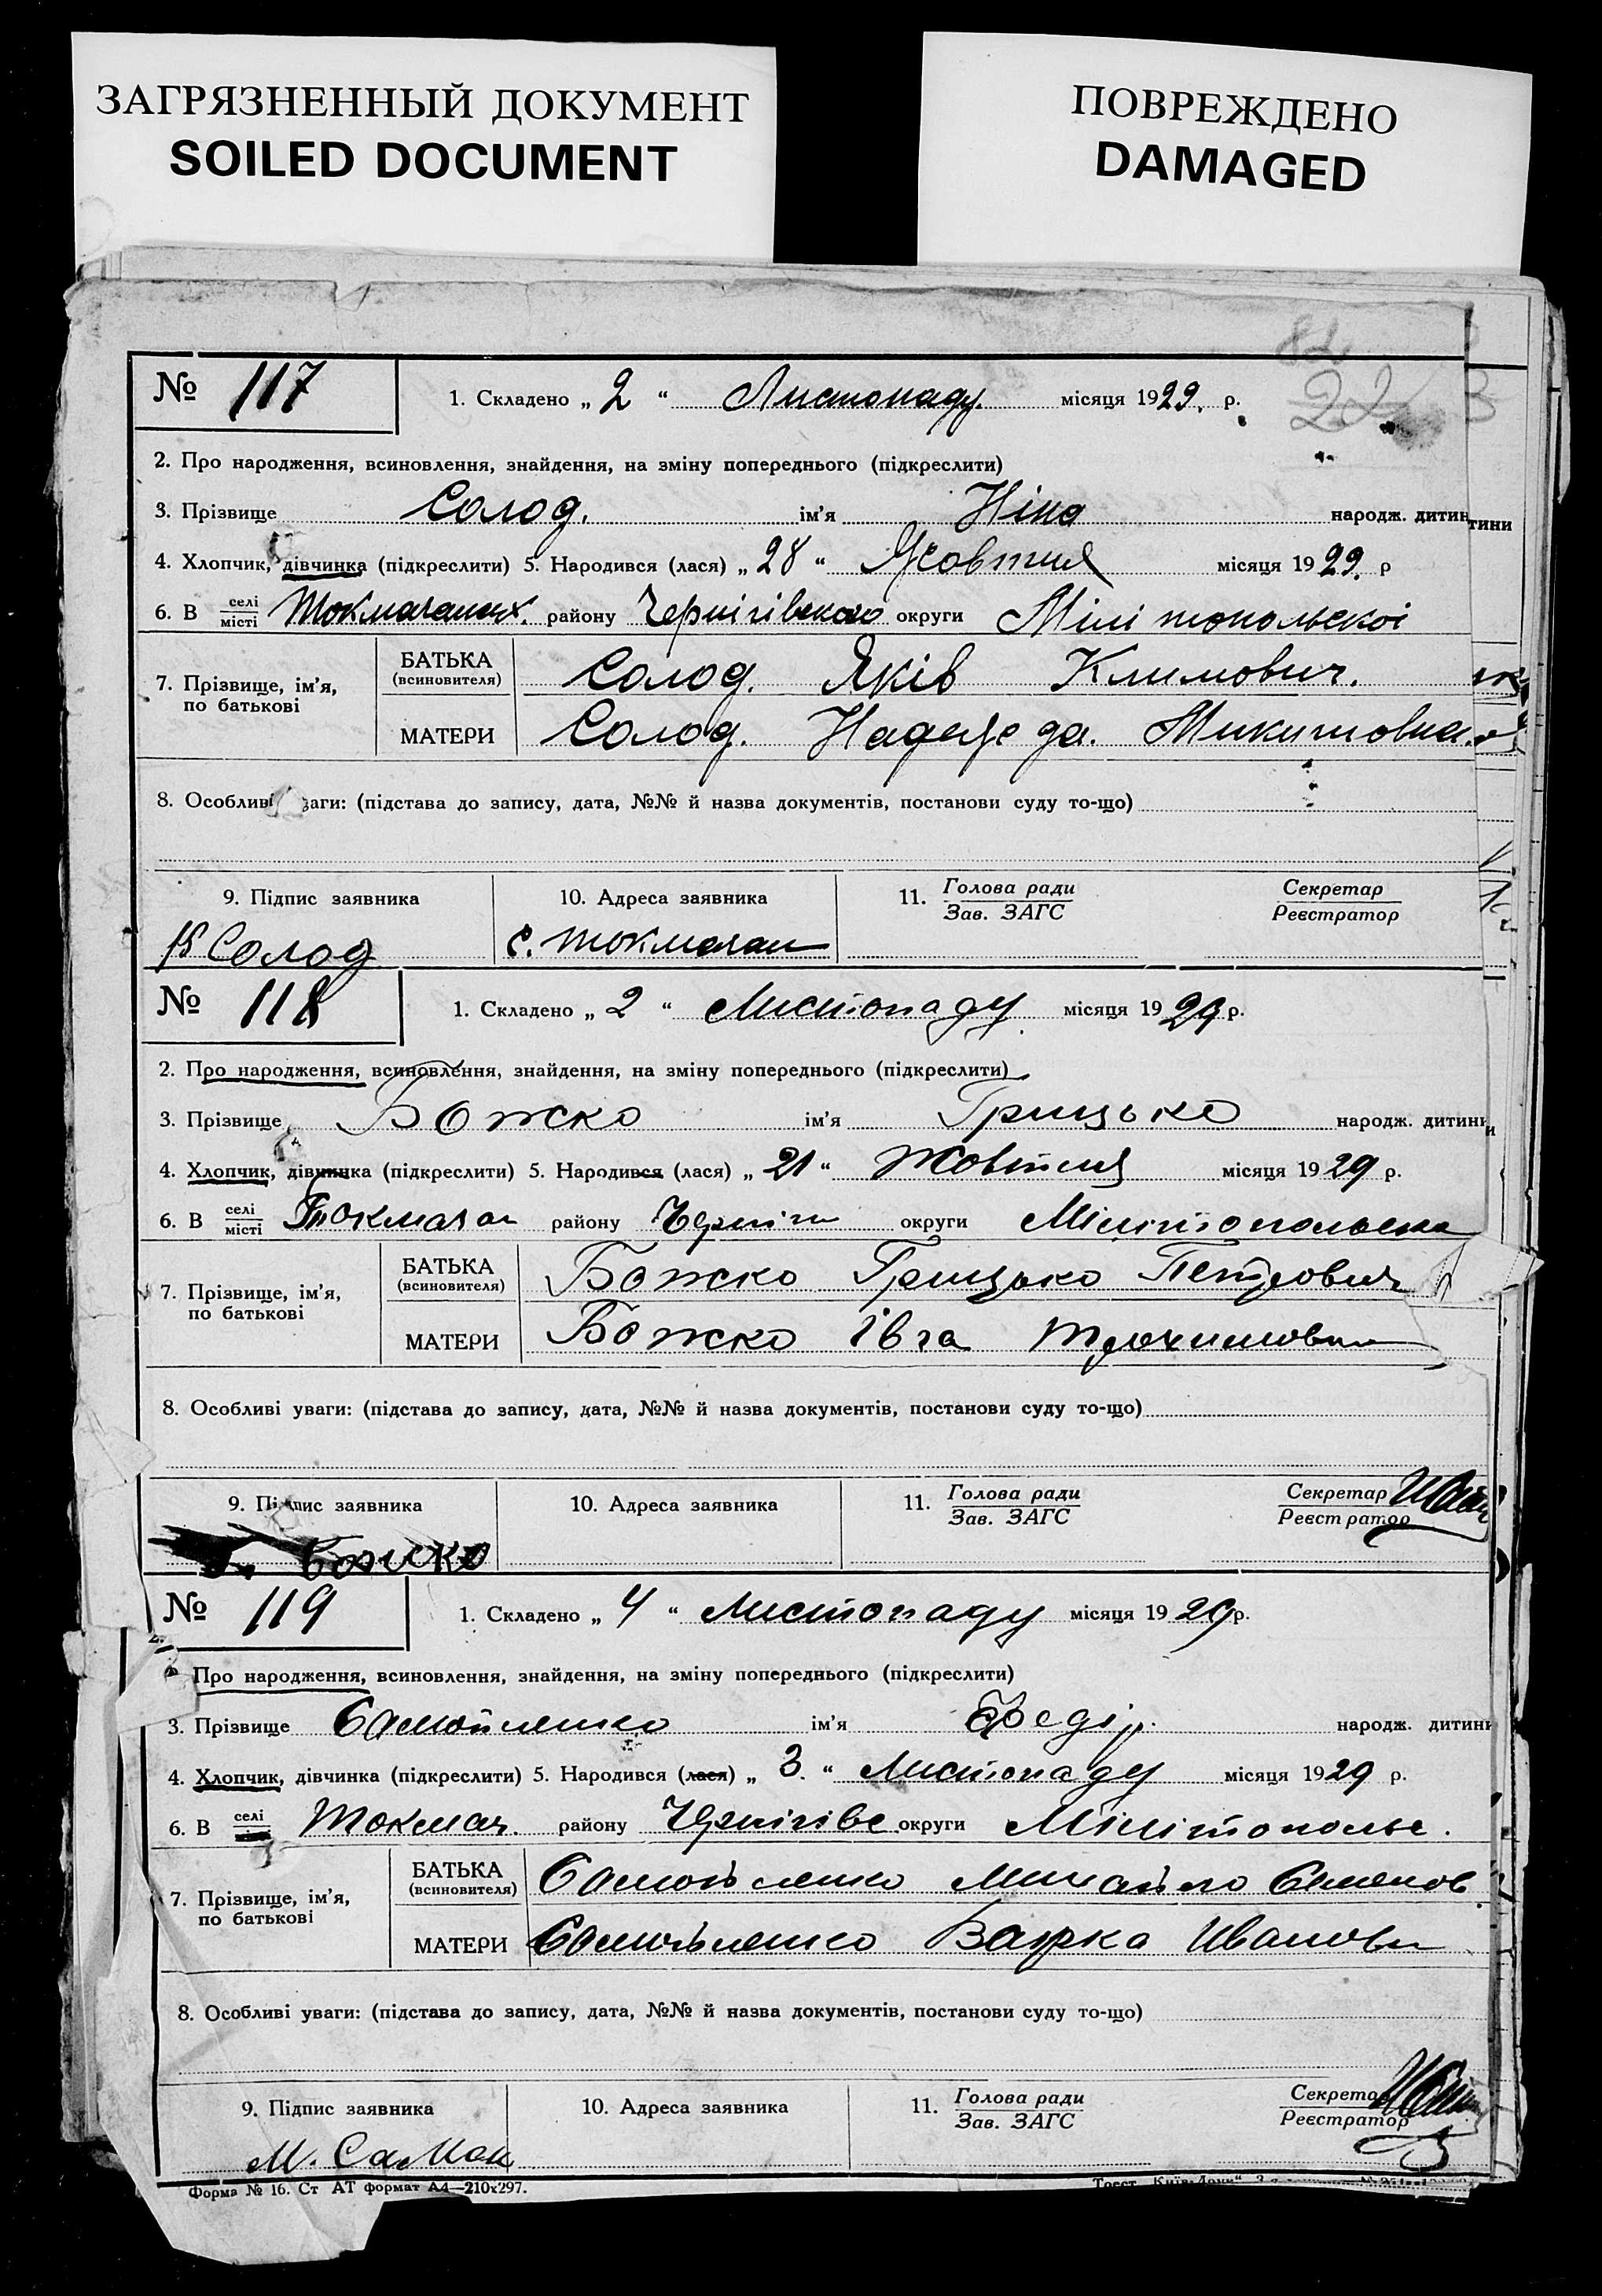 ЗАГРЯЗНЕННЫЙ ДОКУМЕНТ
SOILED DOCUMENT
ПОВРЕЖДЕНО
DAMAGED
82
22
№ 117
1. Складено „ 2 “ Листопаду. місяця 1929. р.
2. Про народження, всиновлення, знайдення, на зміну попереднього (підкреслити)
3. Прізвище Солод. ім'я Ніна народж. дитин
тини
4. Хлопчик, дівчинка (підкреслити) 5. Народився (лася) „ 28 “ Жовтня місяця 1929. р
6. В селі місті району Чернігівского округи Мілітопольскоі
7. Прізвище, ім'я, по батькові
БАТЬКА (всиновителя) Солод. Яків Климович.
МАТЕРИ Солод. Надежда. Микитовна.
8. Особливі ваги: (підстава до запису, дата, №№ й назва документів, постанови суду то-що)
9. Підпис заявника
10. Адреса заявника
11. Голова ради Зав. ЗАГС
Секретар Реєстратор
Солод
с. Токмачан
№ 118
1. Складено „ 2 “ Листопаду місяця 1929 р.
2. Про народження, всиновлення, знайдення, на зміну попереднього (підкреслити)
3. Прізвище Божко ім'я Грицько народж. дитини
4. Хлопчик, дівчинка (підкреслити) 5. Народився (лася) „ 21 “ Жовтня місяця 1929 р.
6. В селі місті Токмачан району Черніги округи Мілітопольська
7. Прізвище, ім'я, по батькові
БАТЬКА (всиновителя) Божко Грицько Петрович
МАТЕРИ Божко Івга
8. Особливі уваги: (підстава до запису, дата, №№ й назва документів, постанови суду то-що)
9. Підпис заявника
10. Адреса заявника
11. Голова ради Зав. ЗАГС
Секретар Реєстратор
Божко
№ 119
1. Складено „ 4 “ Листопаду місяця 1929 р.
2. Про народження, всиновлення, знайдення, на зміну попереднього (підкреслити)
3. Прізвище Самойленко ім'я Федір. народж. дитини
4. Хлопчик, дівчинка (підкреслити) 5. Народився (лася) „ 3. “ Листопаду місяця 1929 р.
6. В селі Токмач. району Чернігівс округи Мілітопольс.
7. Прізвище, ім'я, по батькові
БАТЬКА (всиновителя) Самойленко Михайло Семенов
МАТЕРИ Самойленко Варка Иванови
8. Особливі уваги: (підстава до запису, дата, №№ й назва документів, постанови суду то-що)
9. Підпис заявника
10. Адреса заявника
11. Голова ради Зав. ЗАГС
Секретар Реєстратор
М. Самой
Форма № 16. Ст АТ формат А4—210х297.